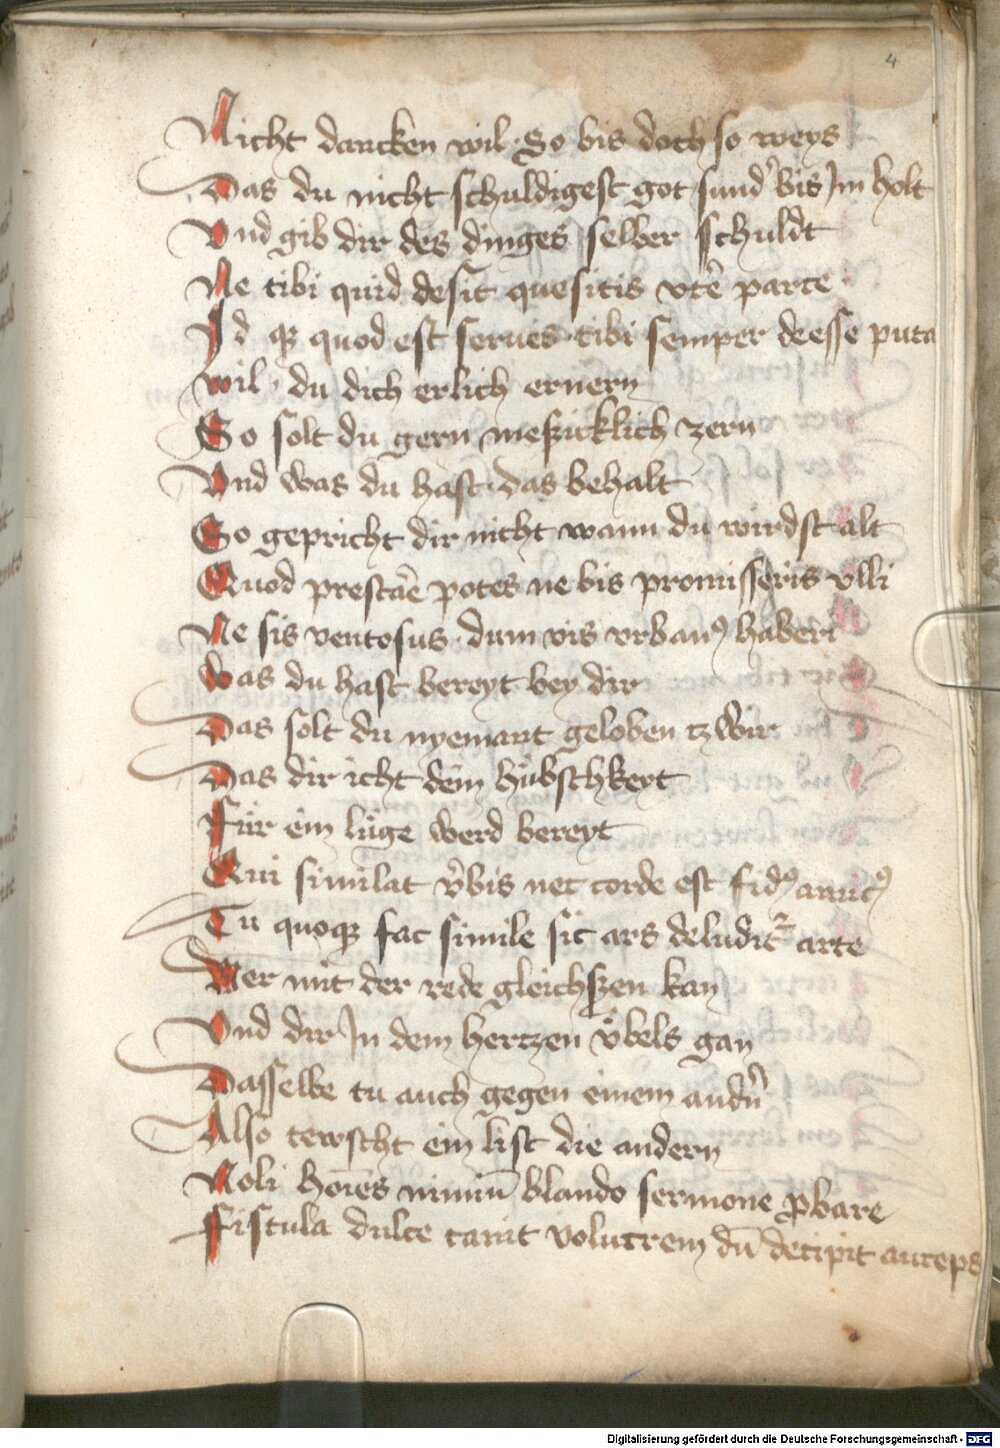 4
Nicht dancken wil · So bis doch so weys
Das du nicht schuldigest got sund̉ bis Jm holt
Vnd gib dir des dinges selber schuldt
Ne tibi quid desit quesitis vtē parce
Id qꝫ quod est serues · tibi semper deesse puta
wil du dich erlich ernern
So solt du gern meszicklich zern
Vnd was du hast · das behalt
So gepricht dir nicht wann du wirdst alt
Quod prestāē potes ne bis promisseris vlli
Ne sis ventosus · dum vis vrbanꝰ haberi
was du hast bereyt bey dir
Das solt du nyemant geloben tzwir
Das dir icht dein hübschkeyt
Für ein lüge werd bereyt
Qui simulat v̉bis nec corde est fidꝰ amicꝰ
Tu quoqꝫ fac simile sic ars deludit᷑ arte
Wer mit der rede gleichszen kan
Vnd dir Jn dem hertzen v̈bels gan
Dasselbe tu auch gegen einem andn̉
Also tewscht ein list die andern
Noli hoīes nimiū blando sermone ꝓbare
Fistula dulce canit volucrem dū decipit auceps
Digitalisierung gefördert durch die Deutsche Forschungsgemeinschaft - DFG